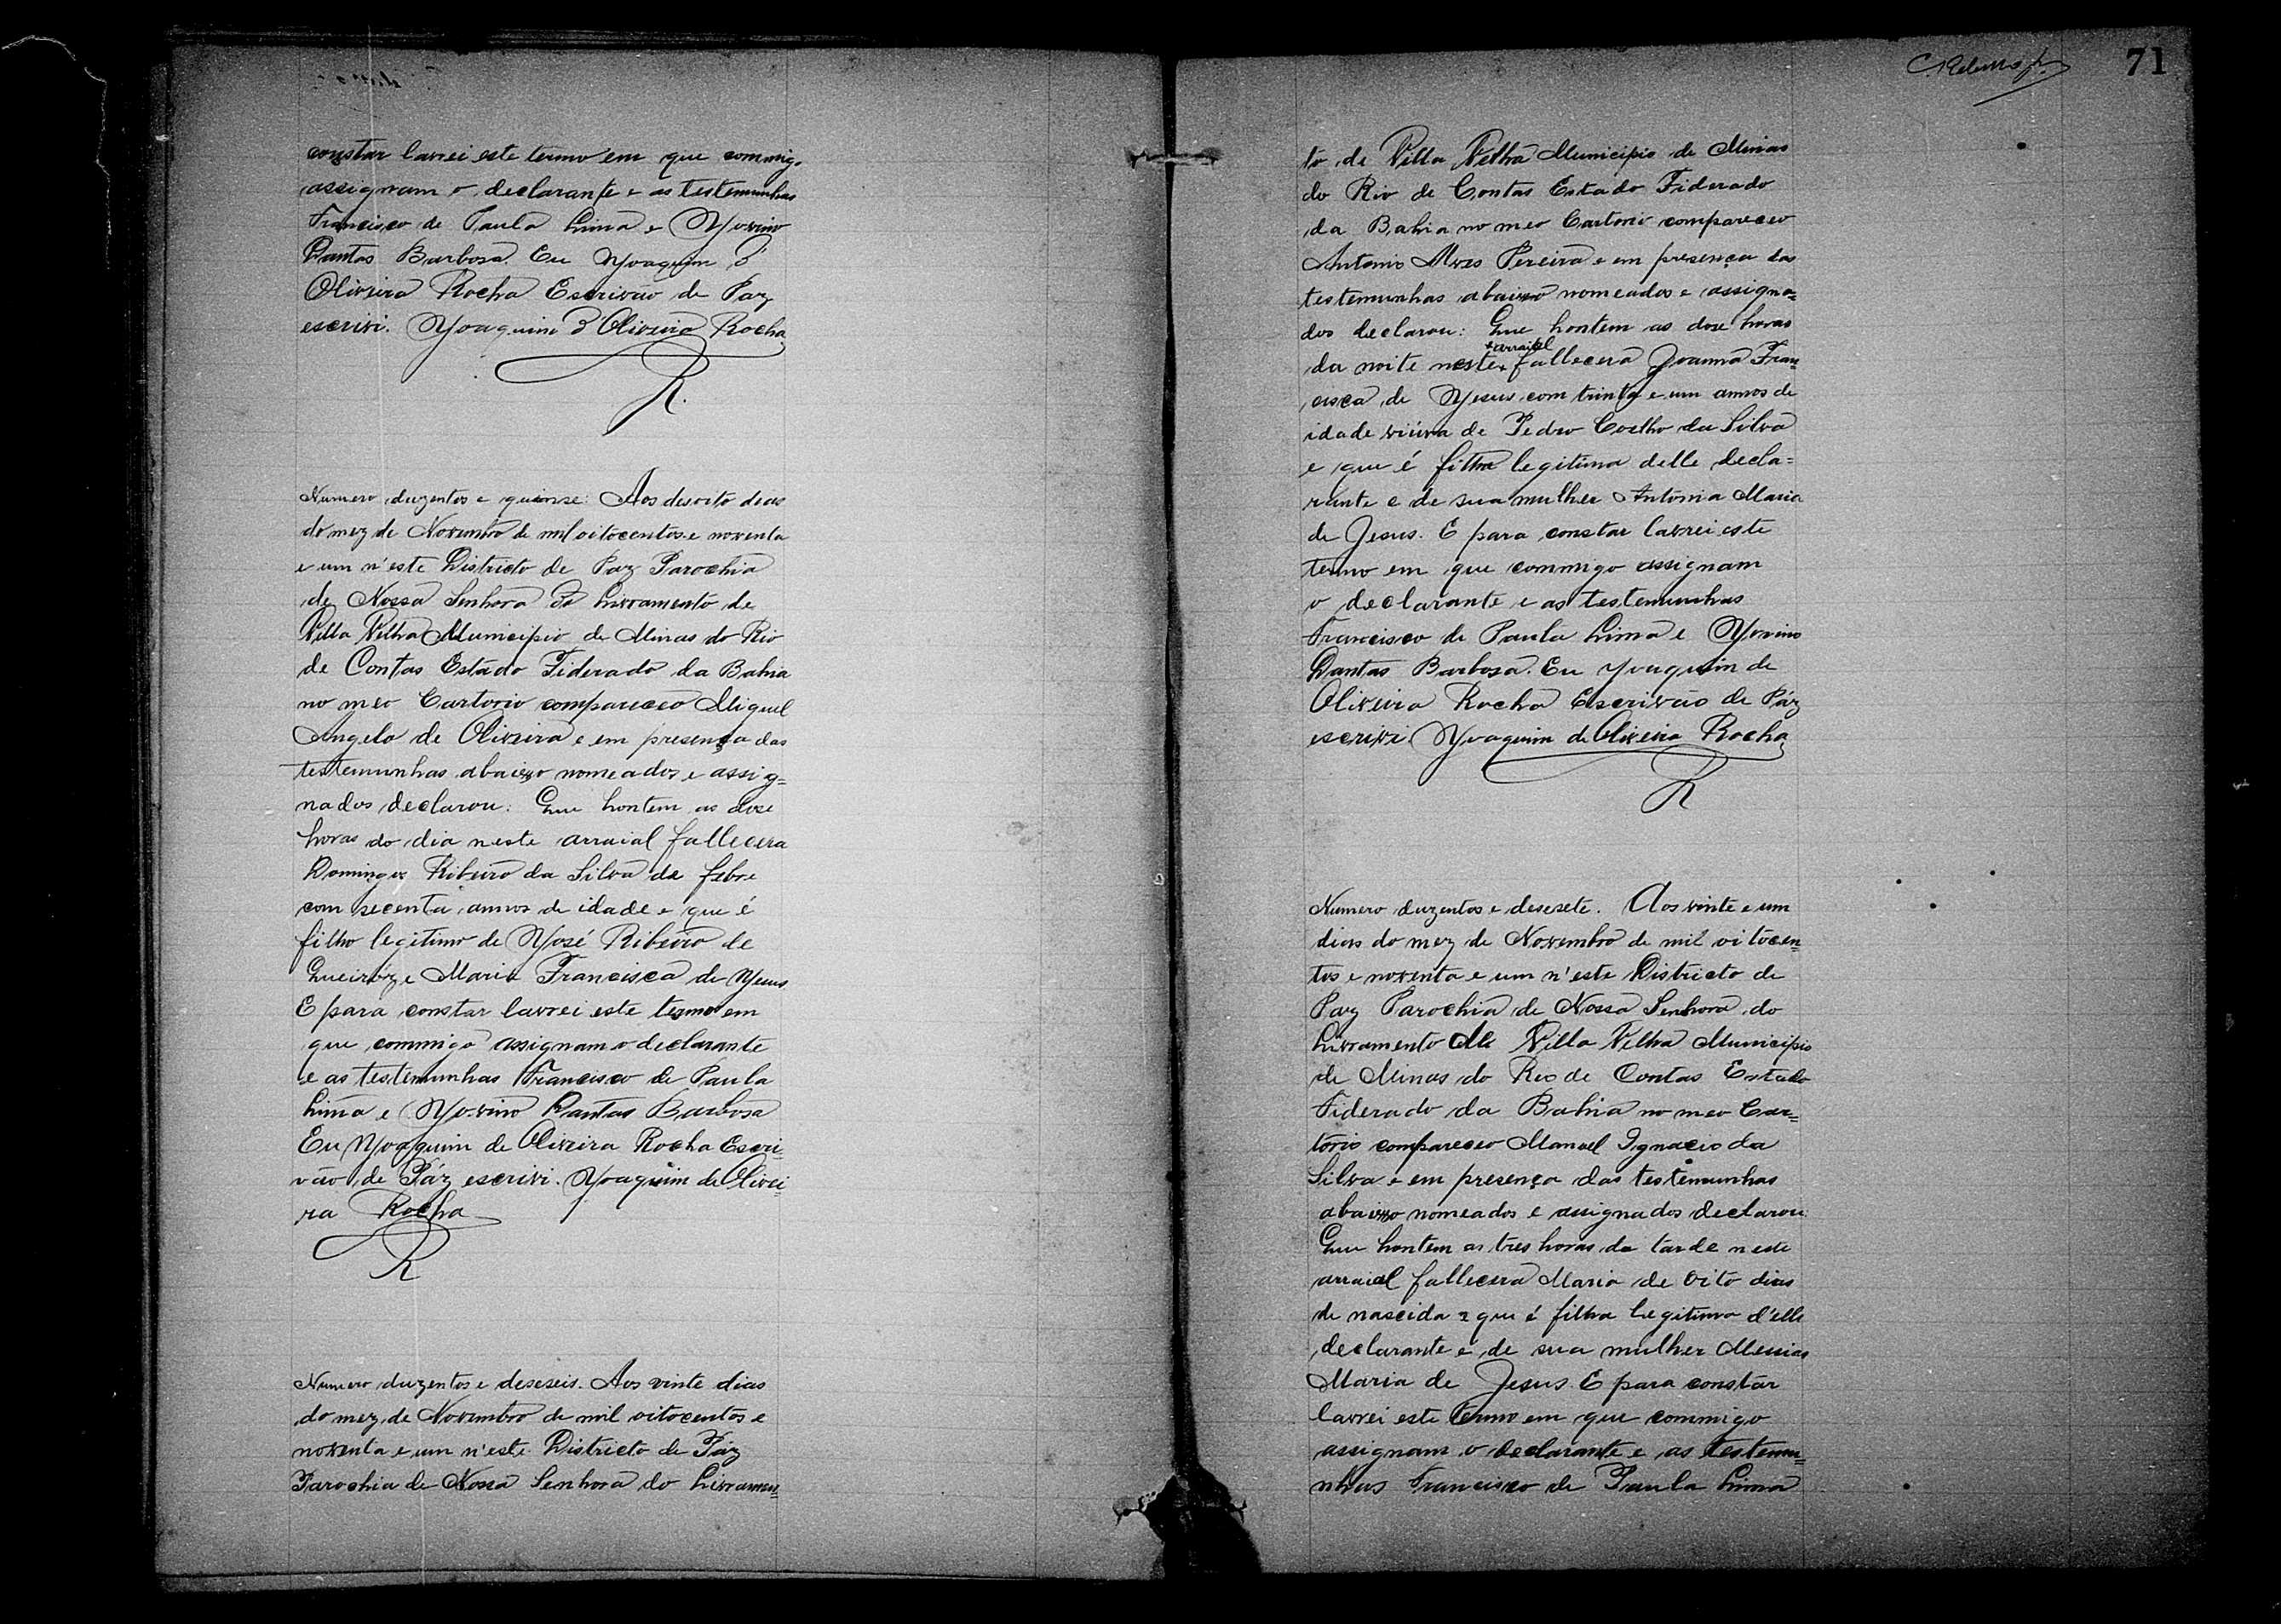 constar lavrei este termo em que commigo
assignam o declarante e as testemunhas
Francisco de Paula Lima e Jovino
Dantas Barbosa. Eu Joaquim d'
Oliveira Rocha Escrivão de Paz
escrivi. Joaquim d'Oliveira Rocha
R.
Numero duzentos e quinse: Aos desoito dias
do mez de Novembro de mil oitocentos e noventa
e um n'este Districto de Paz Parochia
de Nossa Senhora do Livramento de
Villa Velha Municipio de Minas do Rio
de Contas Estado Fiderado da Bahia
no meo Cartorio compareceo Miguel
Angelo de Oliveira e em presença das
testemunhas abaixo nomeados e assig=
nados declarou: Que hontem as dose
horas do dia neste arraial fallecera
Domingos Ribeiro da Silva de febre
com secenta annos de idade e que é
filho legitimo de José Ribeiro de
Queiroz e Maria Francisca de Jesus
E para constar lavrei este termo em
que commigo assignam o declarante
e as testemunhas Francisco de Paula
Lima e Jovino Dantas Barbosa
Eu Joaquim de Oliveira Rocha Escri=
vão de Páz escrivi. Joaquim de Olivei=
ra Rocha
R
Numero duzentos e deseseis. Aos vinte dias
do mez de Novembro de mil oitocentos e
noventa e um n'este Districto de Páz
Parochia de Nossa Senhora do Livramen=
71
to de Villa Velha Municipio de Minas
do Rio de Contas Estado Fiderado
da Bahia no meo Cartorio compareceo
Antonio Alves Pereira e em presença das
testemunhas abaixo nomeados e assigna=
dos declarou: Que hontem as dose horas
+ arraial
da noite neste + fallecera Joanna Fran=
cisca de Jesus com trinta e um annos de
idade viúva de Pedro Coelho da Silva
e que é filha legitima delle decla=
rante e de sua mulher Antonia Maria
de Jesus. E para constar lavrei este
termo em que commigo assignam
o declarante e as testemunhas
Francisco de Paula Lima e Jovino
Dantas Barbosa. Eu Joaquim de
Oliveira Rocha Escrivão de Páz
escrivi Joaquim de Oliveira Rocha
R
Numero duzentos e desesete. Aos vinte e um
dias do mez de Novembro de mil oitocen=
tos e noventa e um n'este Districto de
Paz Parochia de Nossa Senhora do
Livramento de Villa Velha Municipio
de Minas do Rio de Contas Estado
Fiderado da Bahia no meo Car=
torio compareceo Manoel Ignacio da
Silva e em presença das testemunhas
abaixo nomeados e assignados declarou:
Que hontem as tres horas da tarde neste
arraial fallecera Maria de oito dias
de nascida e que é filha legitima d'elle
declarante e de sua mulher Messias
Maria de Jesus. E para constar
lavrei este termo em que commigo
assignam o declarante e as testemu=
nhas Francisco de Paula Lima